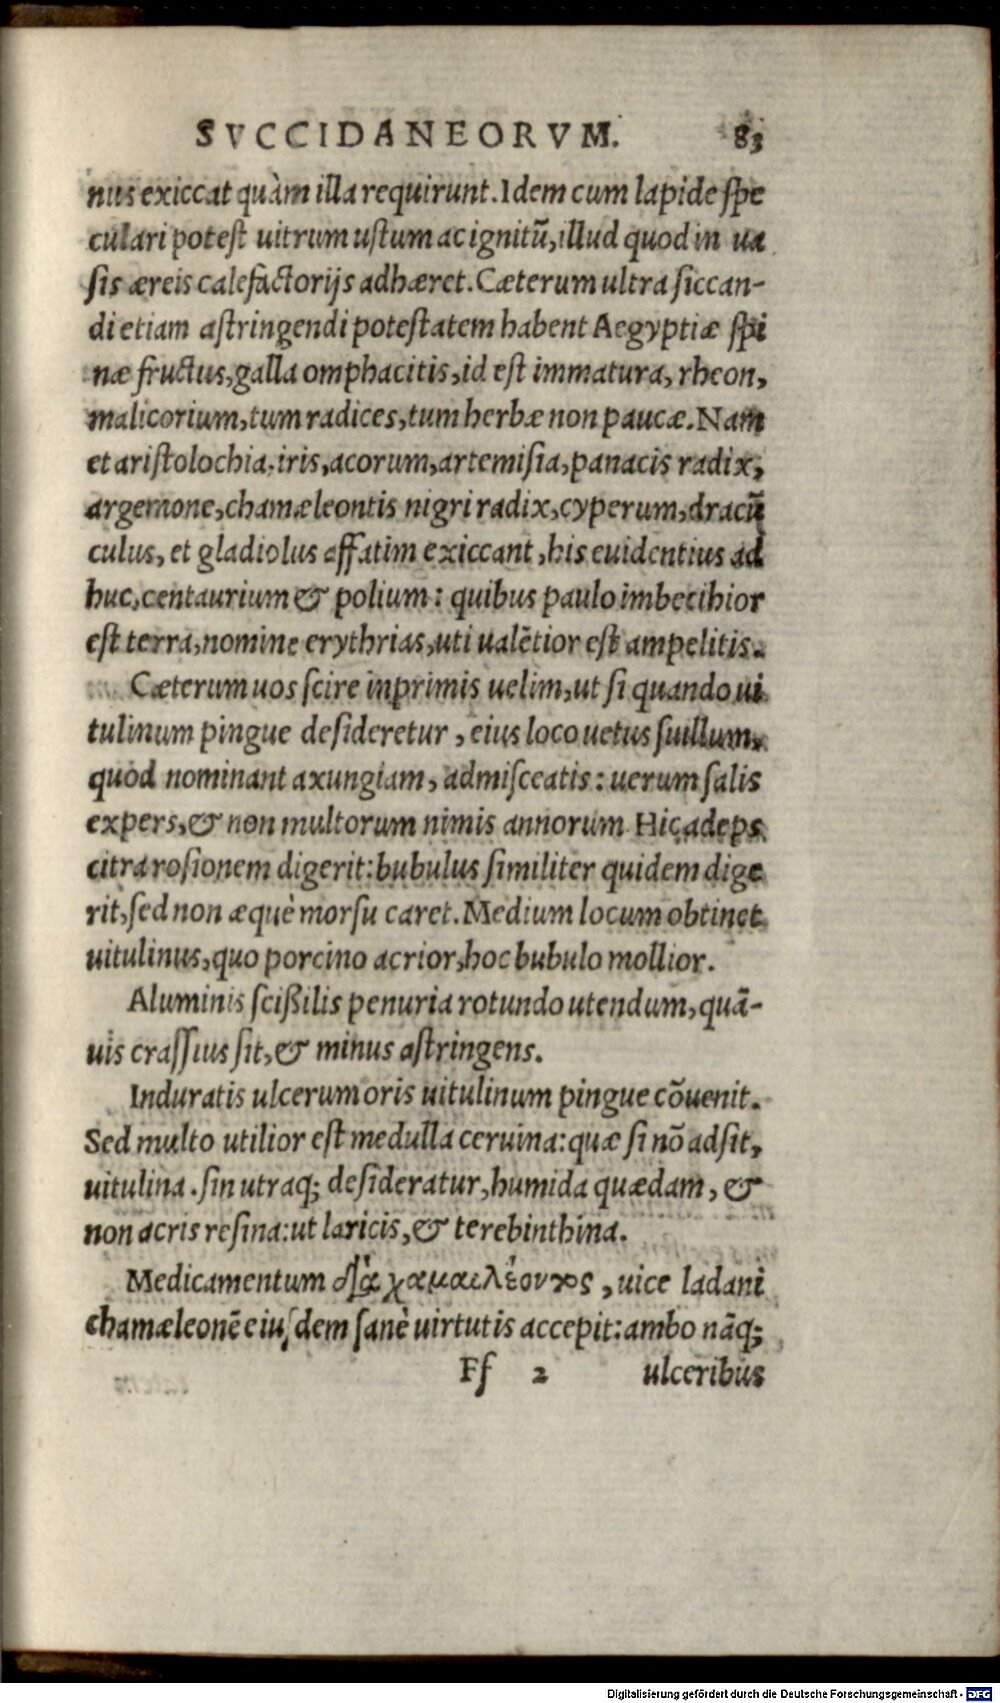 SVCCIDANEORVM. 83
nus exiccat quàm illa requirunt. Idem cum lapide spe
culari potest uitrum ustum ac ignitũ, illud quod in ua
sis æreis calefactorijs adhæret. Cæterum ultra siccan-
di etiam astringendi potestatem habent Aegyptiæ spi
næ fructus, galla omphacitis, id est immatura, rheon,
malicorium, tum radices, tum herbæ non paucæ. Nam
et aristolochia, iris, acorum, artemisia, panacis radix,
argemone, chamæleontis nigri radix, cyperum, dracũ
culus, et gladiolus affatim exiccant, his euidentius ad
huc, centaurium & polium: quibus paulo imbecihior
est terra, nomine erythrias, uti ualẽtior est ampelitis.
Cæterum uos scire inprimis uelim, ut si quando ui
tulinum pingue desideretur, eius loco uetus suillum,
quod nominant axungiam, admisceatis: uerum salis
expers, & non multorum nimis annorum. Hic adeps
citra rosionem digerit: bubulus similiter quidem dige
rit, sed non æquè morsu caret. Medium locum obtinet
uitulinus, quo porcino acrior, hoc bubulo mollior.
Aluminis scißilis penuria rotundo utendum, quã-
uis crassius sit, & minus astringens.
Induratis ulcerum oris uitulinum pingue cõuenit.
Sed multo utilior est medulla ceruina: quæ si nõ adsit,
uitulina. sin utraq; desideratur, humida quædam, &
non acris resina: ut laricis, & terebinthina.
Medicamentum διὰ χαμαιλέοντος, uice ladani
chamæleonẽ eiusdem sanè uirtutis accepit: ambo nãq;
Ff 2 ulceribus
Digitalisierung gefördert durch die Deutsche Forschungsgemeinschaft - DFG